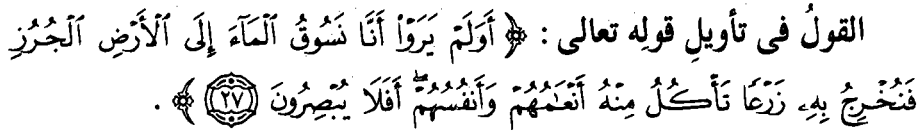 القولُ فى تأويلِ قولِه تعالى : ﴿ أَوَلَمْ يَرَوْا۟ أَنَّا نَسُوقُ ٱلْمَآءَ إِلَى ٱلْأَرْضِ ٱلْجُرُزِ
فَنُخْرِجُ بِهِۦ زَرْعًا تَأْكُلُ مِنْهُ أَنْعَـٰمُهُمْ وَأَنفُسُهُمْ ۖ أَفَلَا يُبْصِرُونَ ٢٧ ﴾ .